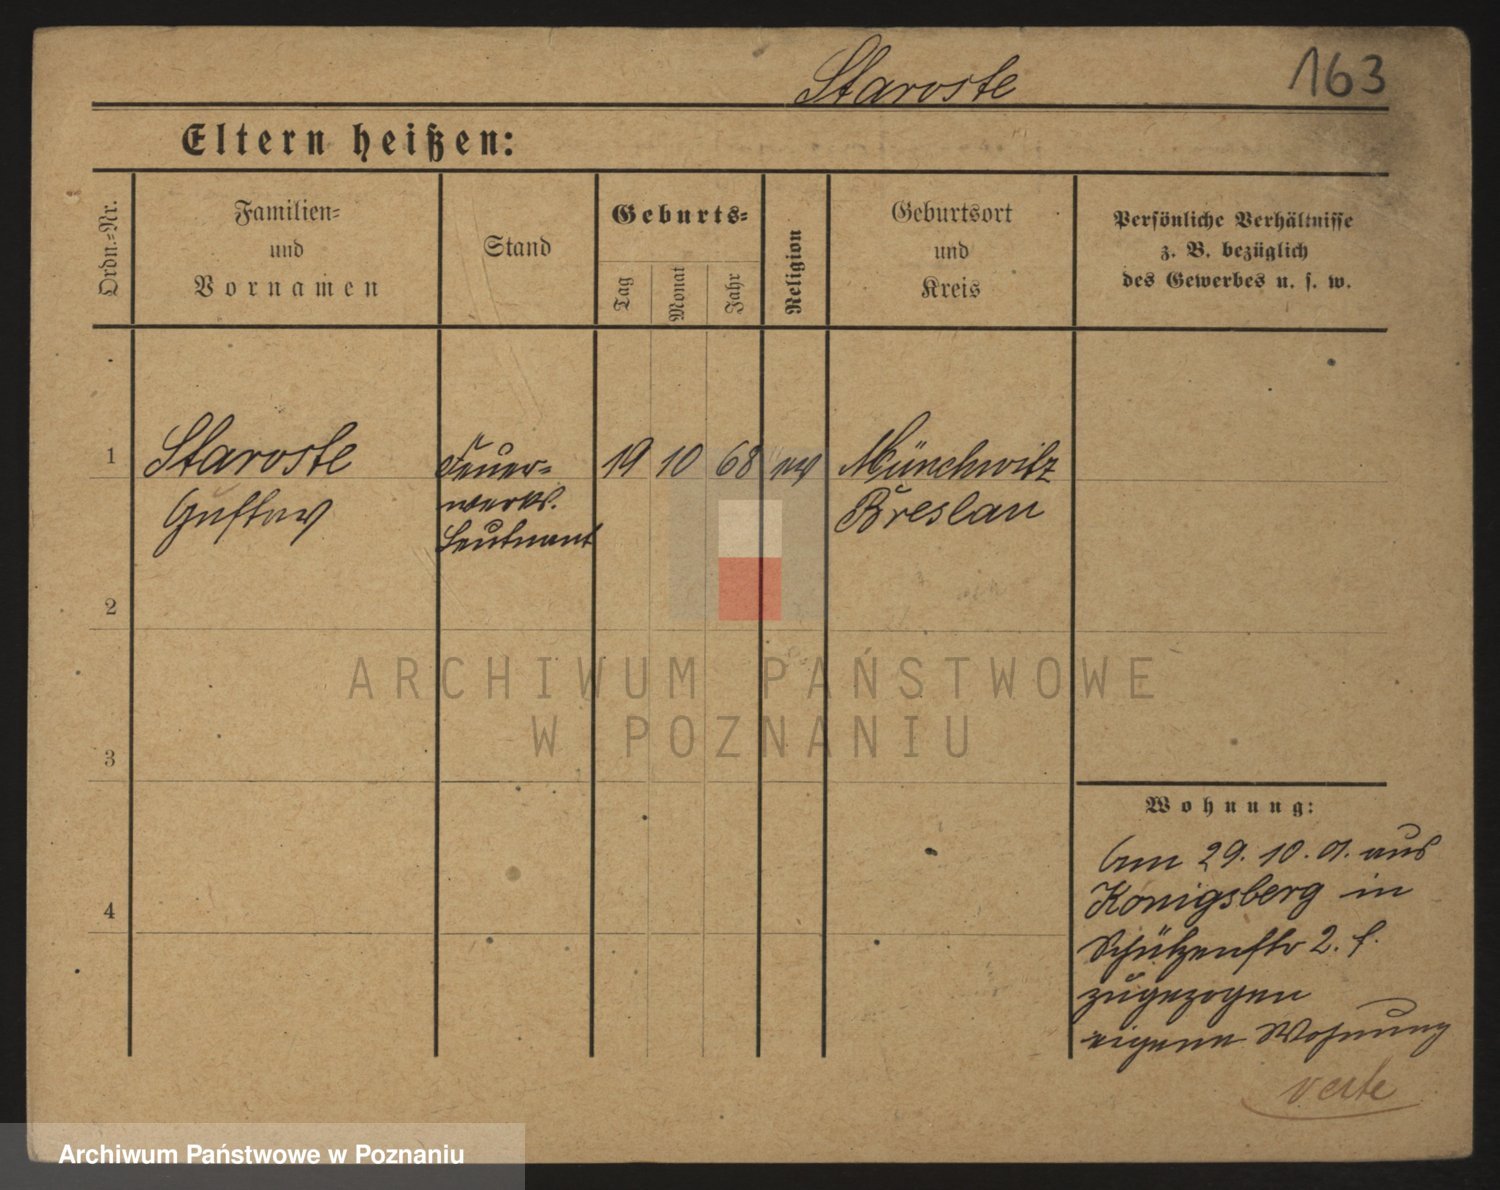 Staroste
163
Eltern heißen:
Ordn.=Nr.
Familien=
und
Vornamen
Stand
Geburts=
Tag
Monat
Jahr
Religion
Geburtsort
und
Kreis
Persönliche Verhältnisse
z. B. bezüglich
des Gewerbes u. s. w.
1
Staroste
Gustav
Feuer=
werks.
Leutnant
19
10
68
ev
Münchwitz
Breslau
2
ARCHIWUM PAŃSTWOWE
W POZNANIU
3
Wohnung:
Am 29. 10. 01. aus
Königsberg in
Schützenstr 2. f.
zugezogen
eigene Wohnung
4
verte
Archiwum Państwowe w Poznaniu